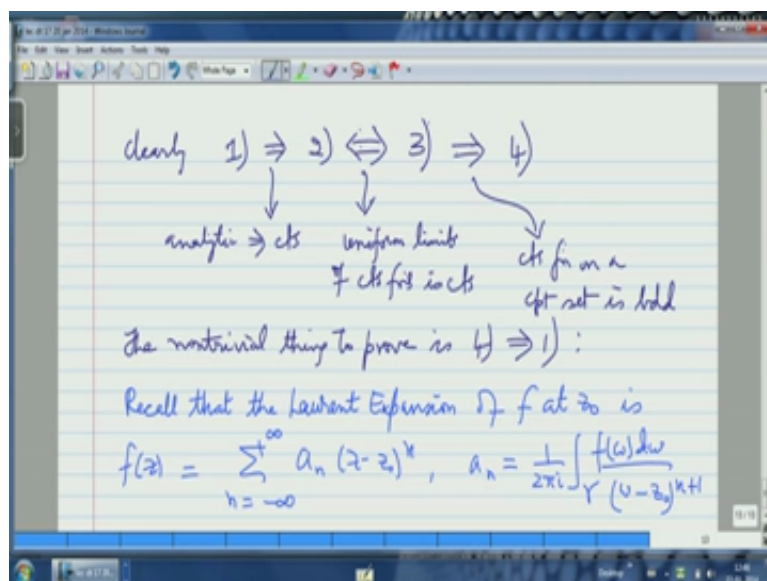 File Edit View Insert Actions Tools Help
Whole Page
clearly 1) ⇒ 2) ⇔ 3) ⇒ 4)
analytic ⇒ cts
uniform limits
of cts fns is cts
cts fn on a
cpt set is bdd
The nontrivial thing to prove is 4) ⇒ 1) :
Recall that the Laurent Expansion of f at z₀ is
f(z) = ∑_{n=-∞}^{+∞} a_n (z-z₀)^n, a_n = 1/2πi ∫_γ f(w)dw/(w-z₀)^{n+1}
Desktop